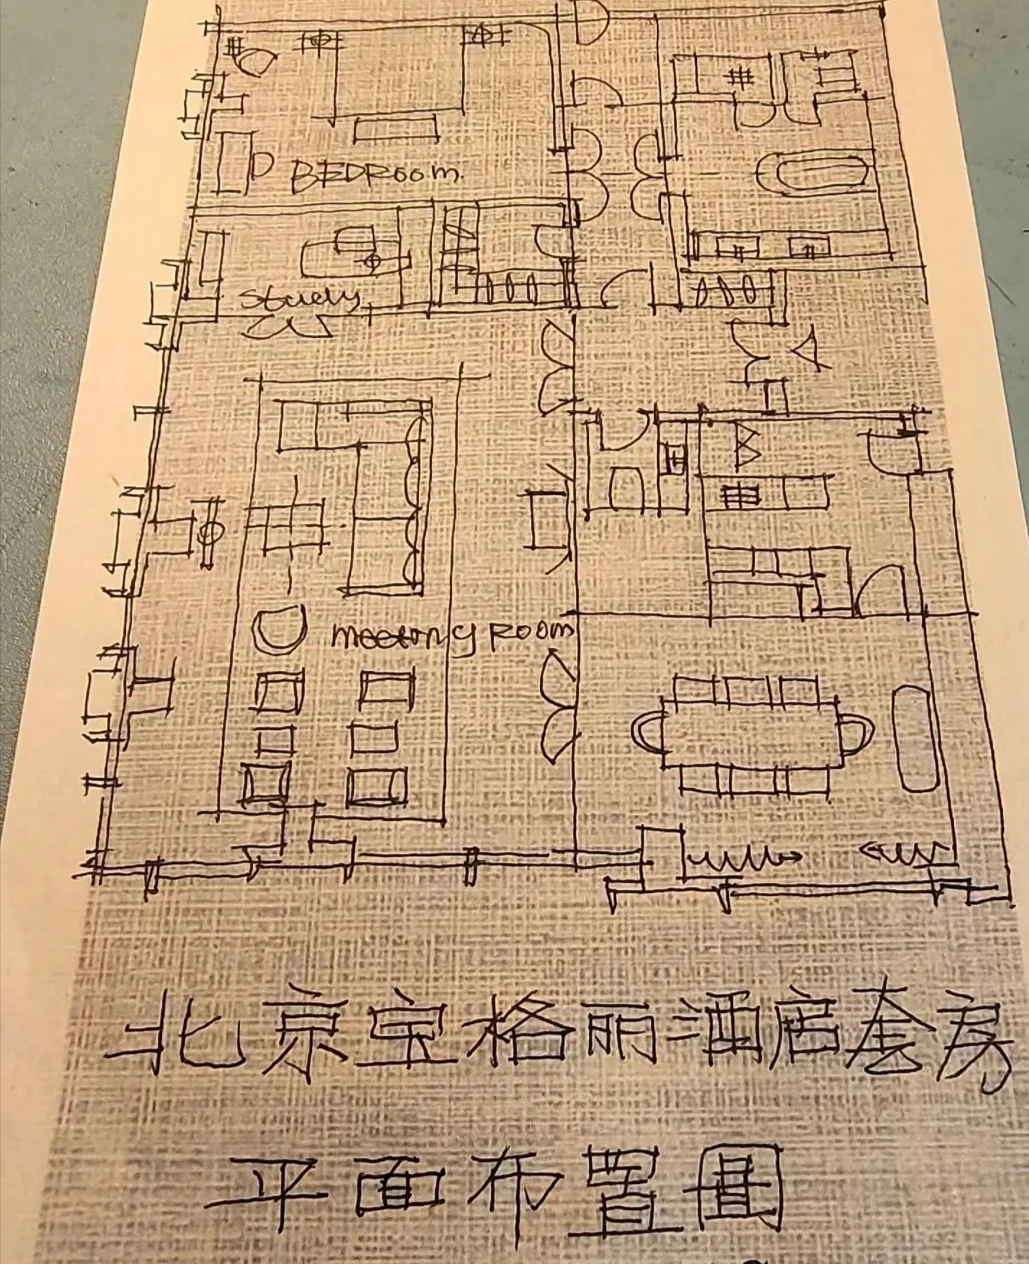 BEDROOM
Study
meeting ROOM
北京宝格丽酒店套房
平面布置图